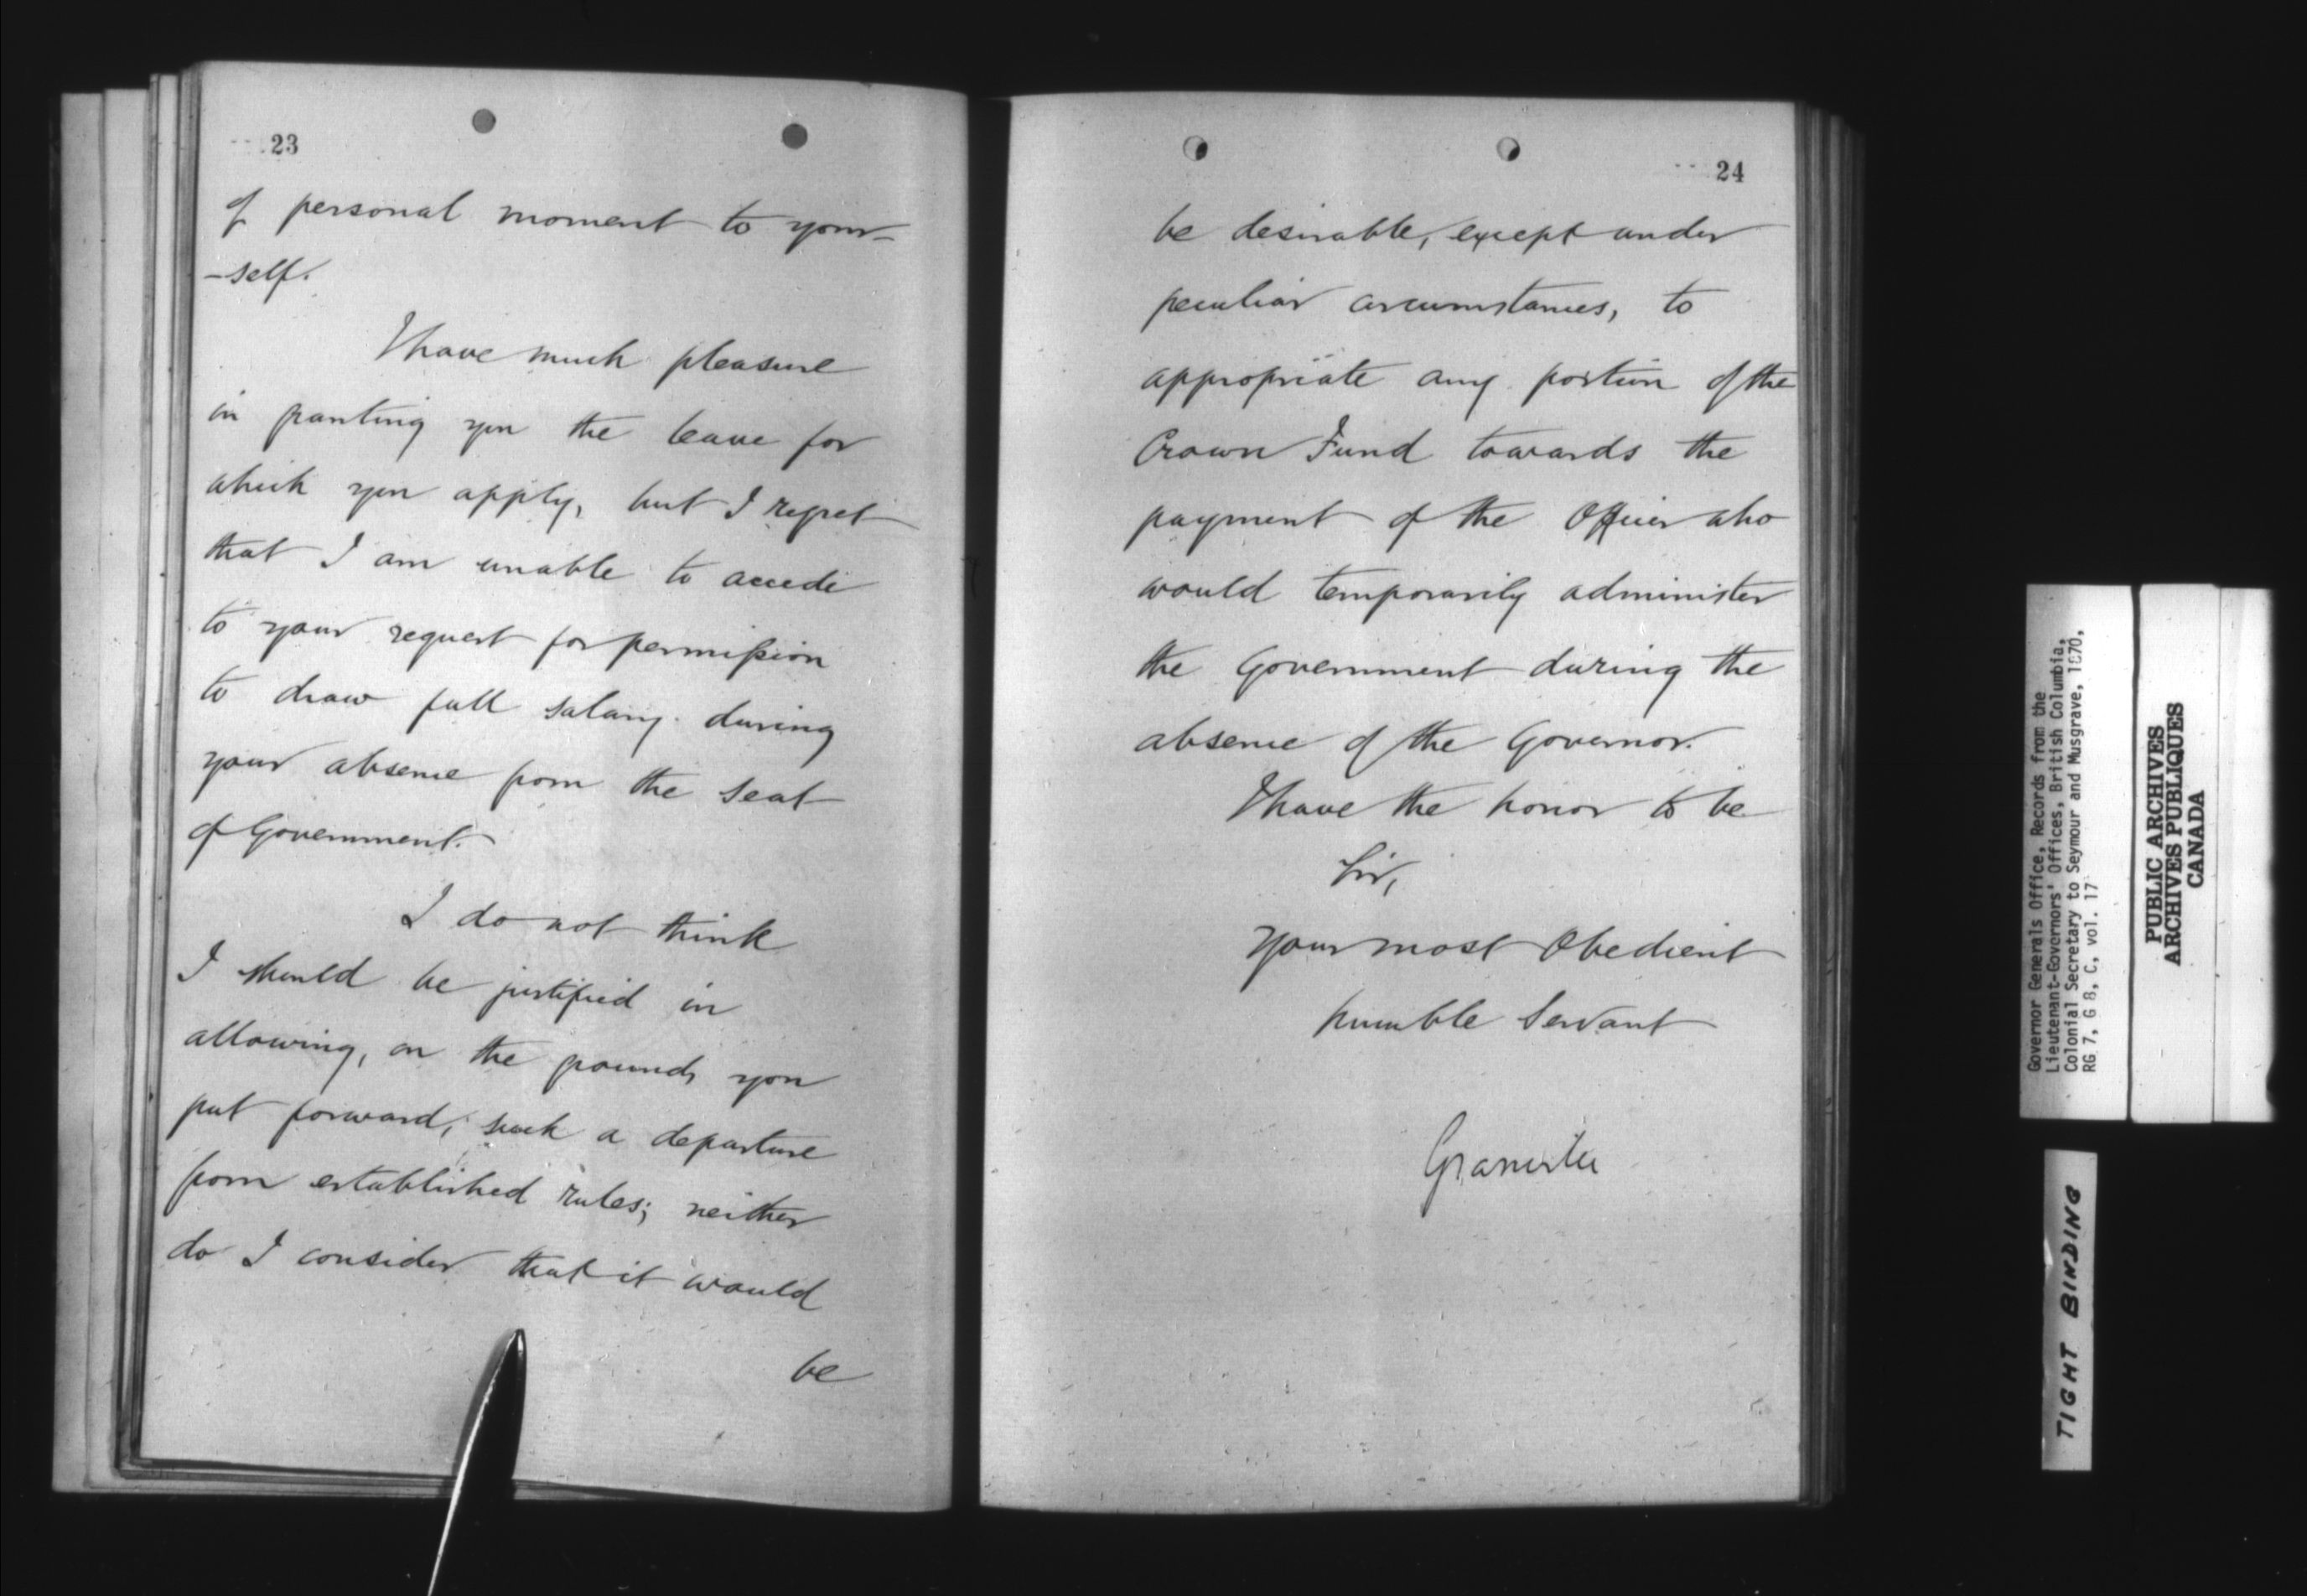 23
of personal moment to your-
-self.
I have much pleasure
in granting you the leave for
which you apply, but I regret
that I am unable to accede
to your request for permission
to draw full salary during
your absence from the Seat
of Government.
I do not think
I should be justified in
allowing, on the grounds you
put forward, such a departure
from established rules; neither
do I consider that it would
be
24
be desirable, except under
peculiar circumstances, to
appropriate any portion of the
Crown Fund towards the
payment of the Officer who
would temporarily administer
the Government during the
absence of the Governor.
I have the honor to be
Sir,
Your most Obedient
humble Servant
Granville
Governor Generals Office, Records from the
Lieutenant-Governors' Offices, British Columbia,
Colonial Secretary to Seymour and Musgrave, 1870,
RG 7, G 8, C, vol. 17
PUBLIC ARCHIVES
ARCHIVES PUBLIQUES
CANADA
TIGHT BINDING